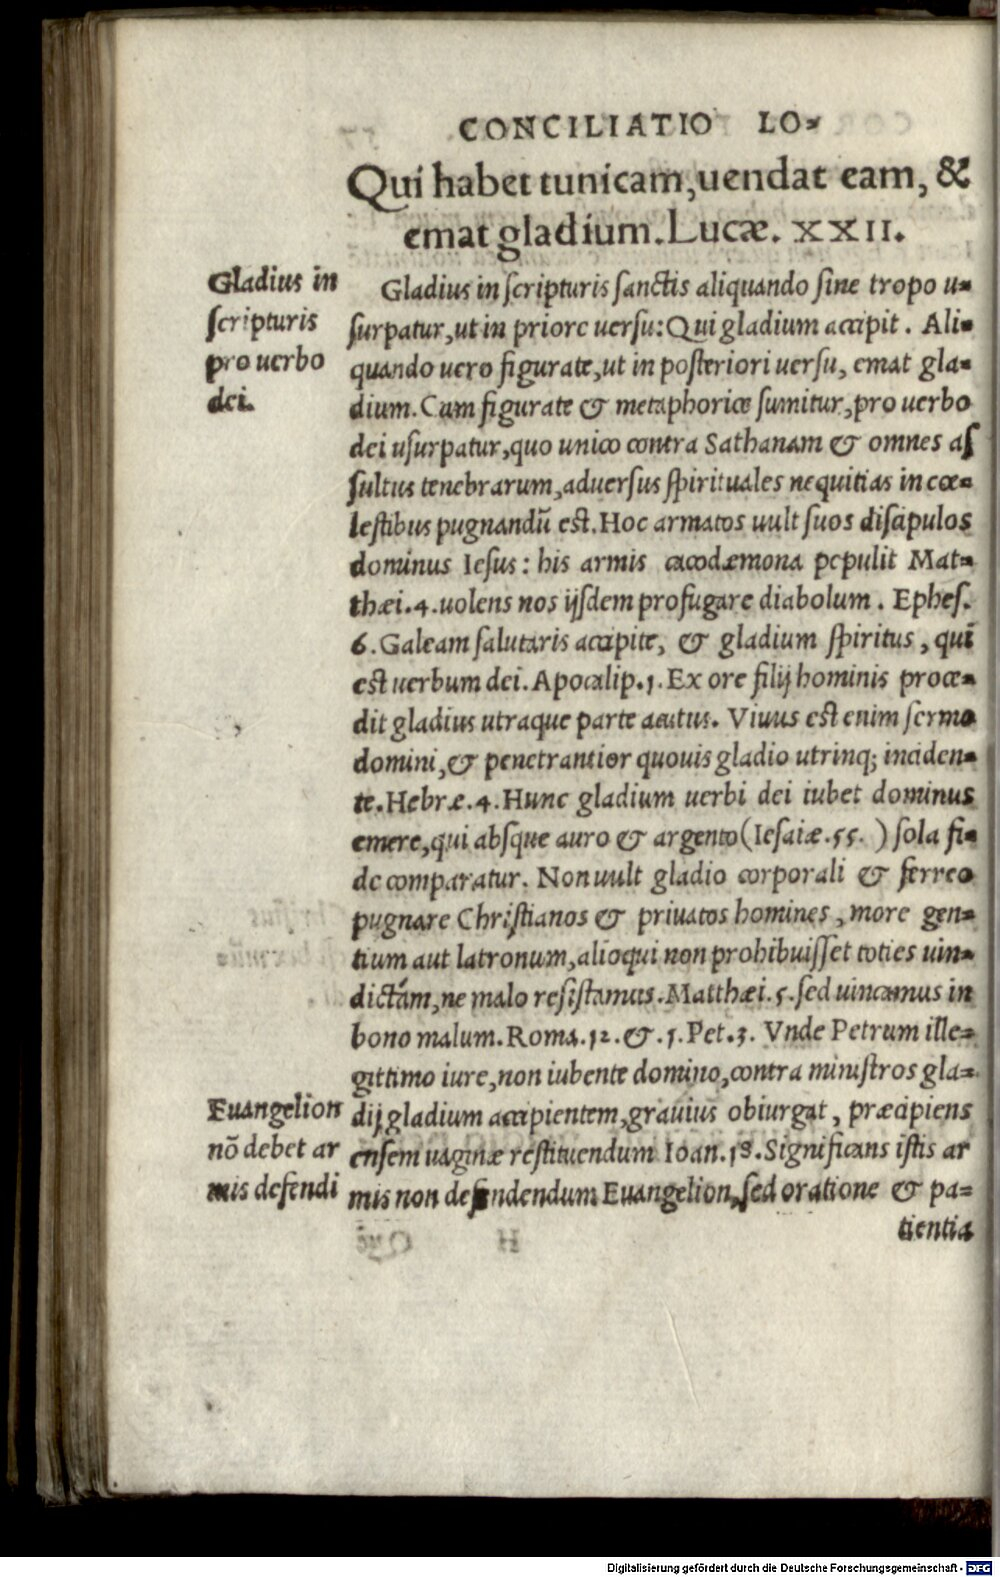 CONCILIATIO LO-
Qui habet tunicam, uendat eam, &
emat gladium. Lucæ. XXII.
Gladius in
scripturis
pro uerbo
dei.
Gladius in scripturis sanctis aliquando sine tropo u-
surpatur, ut in priore uersu: Qui gladium accipit. Ali-
quando uero figurate, ut in posteriori uersu, emat gla-
dium. Cum figurate & metaphorice sumitur, pro uerbo
dei usurpatur, quo unico contra Sathanam & omnes as
sultus tenebrarum, aduersus spirituales nequitias in cœ-
lestibus pugnandū est. Hoc armatos uult suos discipulos
dominus Iesus: his armis cacodæmona pepulit Mat-
thæi. 4. uolens nos ijsdem profugare diabolum. Ephes.
6. Galeam salutaris accipite, & gladium spiritus, qui
est uerbum dei. Apocalip. 1. Ex ore filij hominis proce-
dit gladius utraque parte acutus. Viuus est enim sermo
domini, & penetrantior quouis gladio utrinq; inciden-
te. Hebræ. 4. Hunc gladium uerbi dei iubet dominus
emere, qui absque auro & argento (Iesaiæ. 55. ) sola fi-
de comparatur. Non uult gladio corporali & ferreo
pugnare Christianos & priuatos homines, more gen-
tium aut latronum, alioqui non prohibuisset toties uin-
dictam, ne malo resistamus. Matthæi. 5. sed uincamus in
bono malum. Roma. 12. &. 1. Pet. 3. Vnde Petrum ille-
gittimo iure, non iubente domino, contra ministros gla-
dij gladium accipientem, grauius obiurgat, præcipiens
ensem uaginæ restituendum Ioan. 18. Significans istis ar
mis non defendendum Euangelion, sed oratione & pa-
Euangelion
nō debet ar
mis defendi
tientia
Digitalisierung gefördert durch die Deutsche Forschungsgemeinschaft - DFG